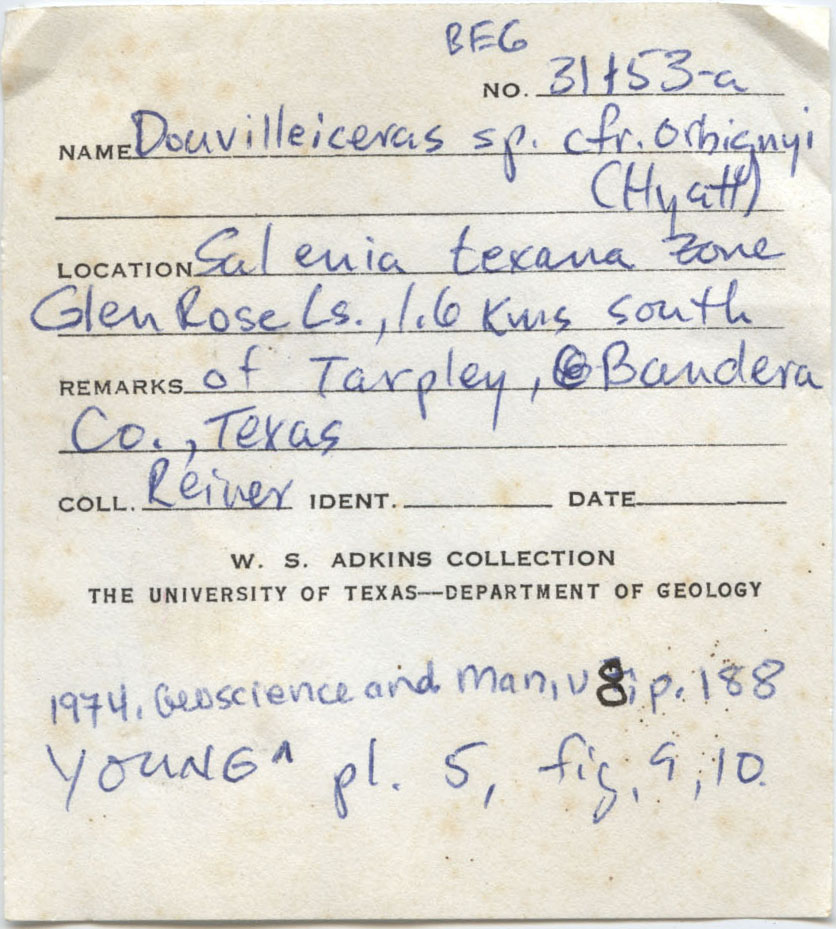 BEG
NO. 31153-a
NAME Douvilleiceras sp. cfr. orbignyi
(Hyatt)
LOCATION Salenia texana zone
Glen Rose Ls., 1.6 Kms south
REMARKS of Tarpley, Bandera
Co., Texas
COLL. Reiner IDENT. DATE
W. S. ADKINS COLLECTION
THE UNIVERSITY OF TEXAS—DEPARTMENT OF GEOLOGY
1974. Geoscience and Man, v 8, p. 188
YOUNG ^ pl. 5, fig, 9, 10.